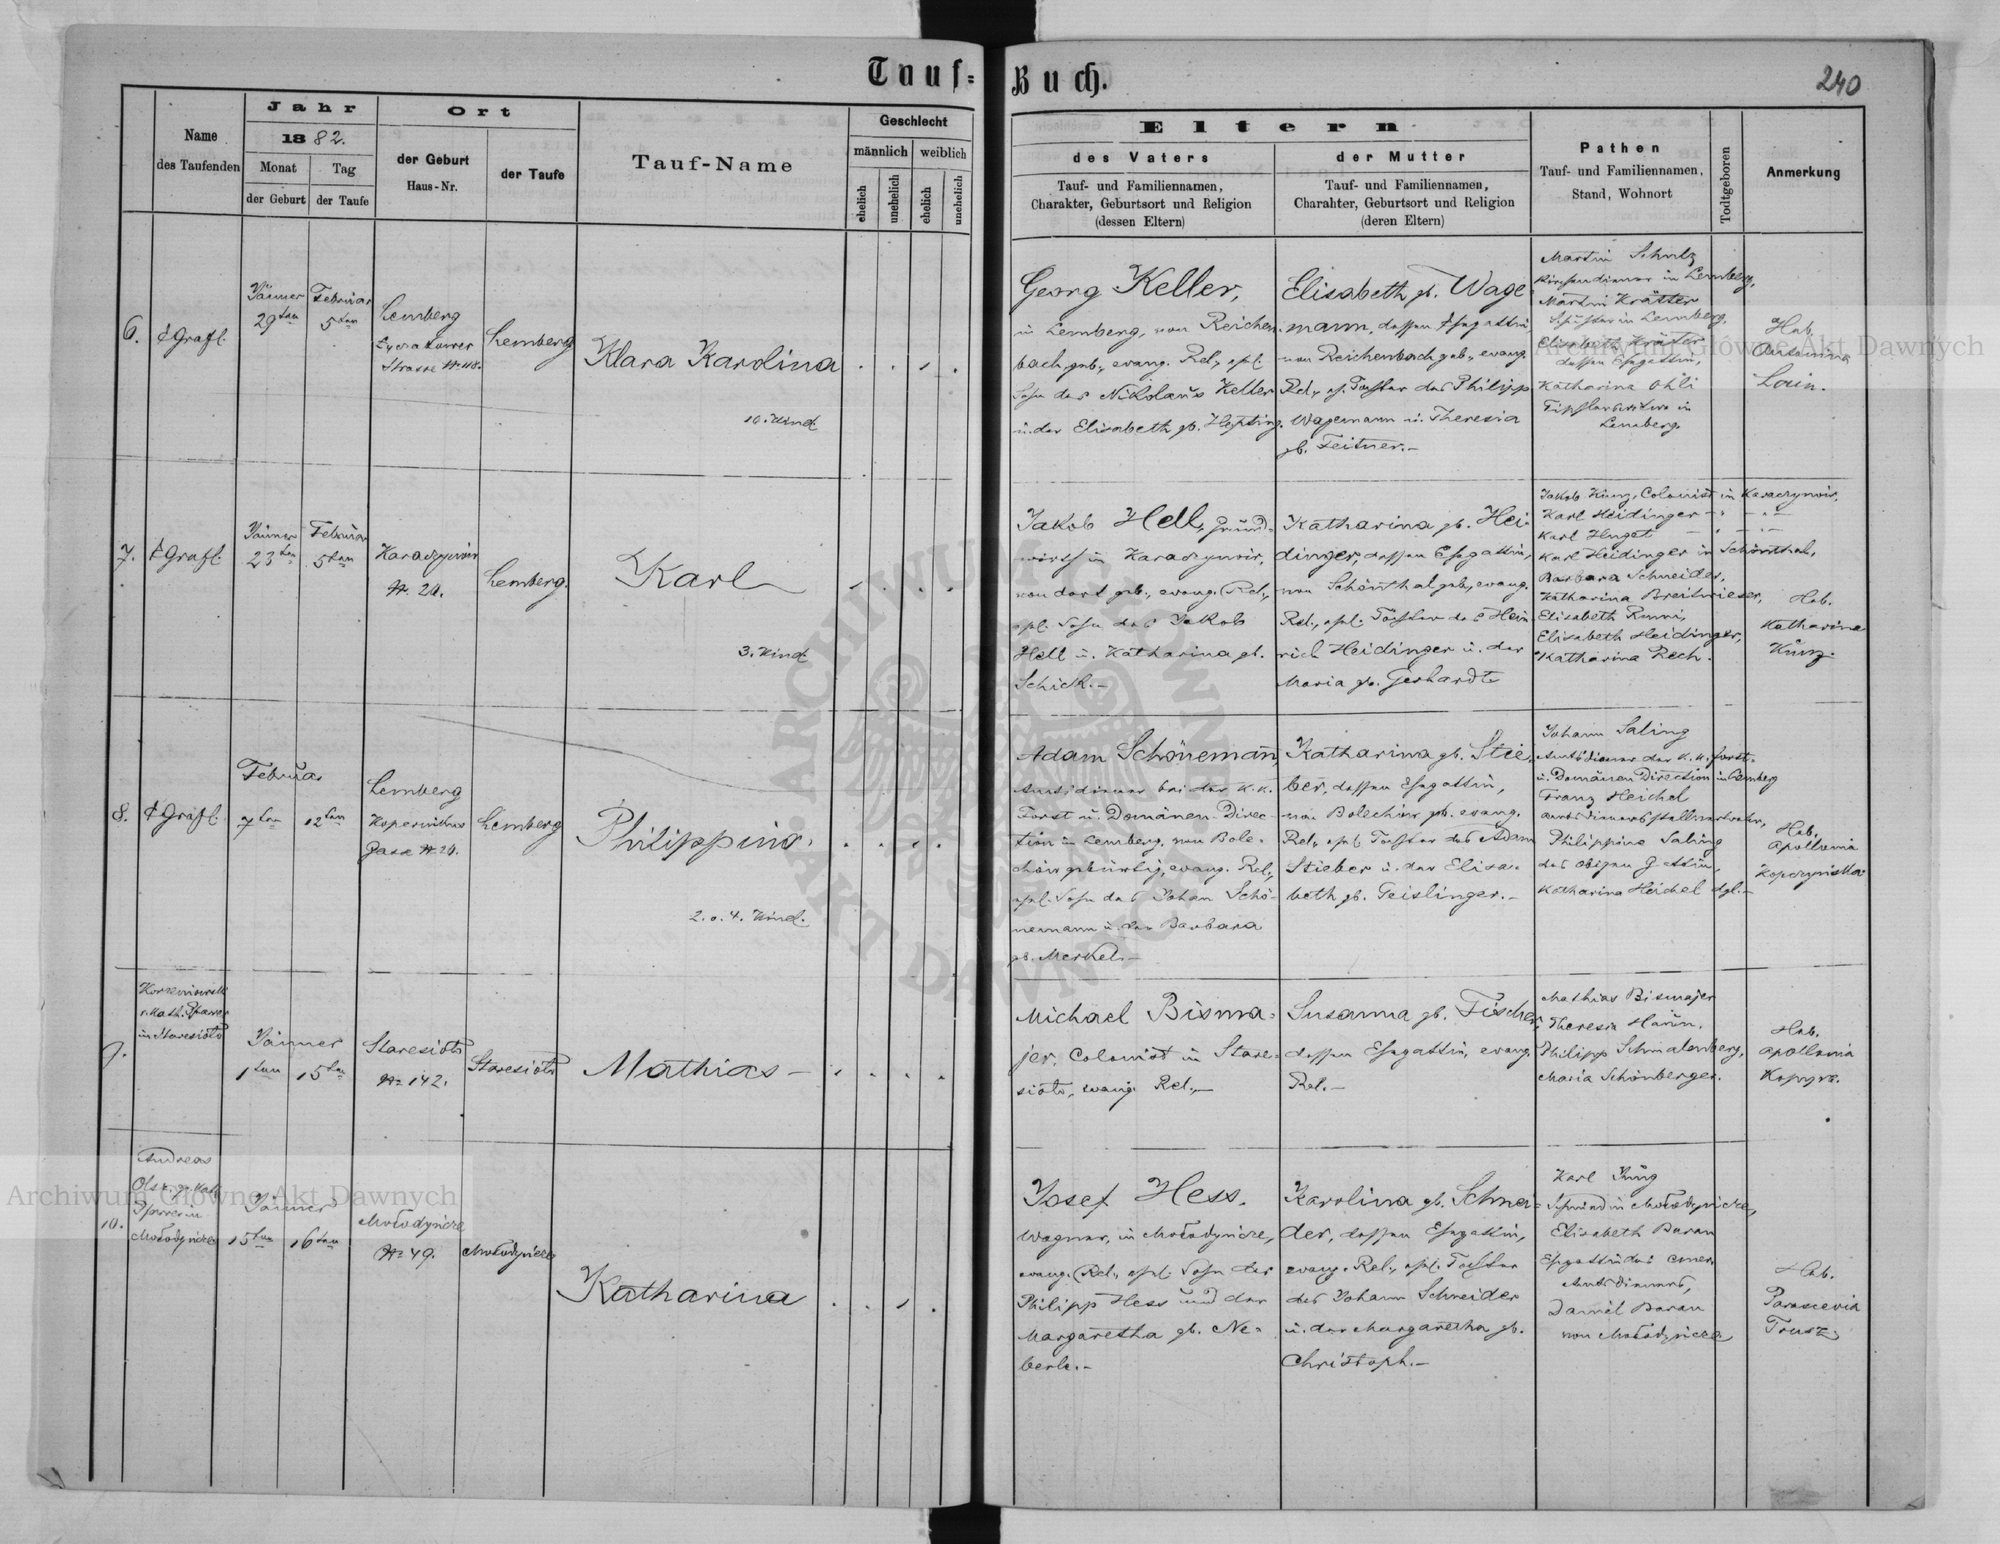 Tauf-Buch.
240
Name
des Taufenden
Jahr
1882.
Monat
der Geburt
Tag
der Taufe
Ort
der Geburt
Haus-Nr.
der Taufe
Tauf-Name
Geschlecht
männlich
weiblich
ehelich
unehelich
ehelich
unehelich
Eltern
des Vaters
Tauf- und Familiennamen,
Charakter, Geburtsort und Religion
(dessen Eltern)
der Mutter
Tauf- und Familiennamen,
Charakter, Geburtsort und Religion
(deren Eltern)
Pathen
Tauf- und Familiennamen,
Stand, Wohnort
Todtgeboren
Anmerkung
6.
Jänner
29ten
Februar
5ten
Lemberg
Strasse N 118.
Lemberg
Klara Karolina
10. Kind
Georg Keller,
in Lemberg, von Reichen-
bach geb., evang. Rel., ehel.
Sohn des Nikolaus Keller
u. der Elisabeth gb. Hepting.
Elisabeth gb. Wage-
mann, dessen Ehegattin,
von Reichenbach geb., evang.
Rel., eh. Tochter des Philipp
Wagemann u. Theresia
gb. Feitner.-
Martin Schulz
Kirchendiener in Lemberg,
Martin Krätter
in Lemberg,
Elisabeth Kräter
dessen Ehegattin,
Katharina Ohli
in
Lemberg.
Heb.
7.
Jänner
23ten
Februar
5ten
N. 20.
Lemberg.
Karl
3. Kind
Jakob Hell, Grund-
wirth in
von dort geb., evang. Rel.,
ehl. Sohn des Jakob
Hell u. Katharina gb.
Schick.-
Katharina gb. Hei-
dinger, dessen Ehegattin,
von Schönthal geb., evang.
Rel., ehl. Tochter des Hein-
rich Heidinger u. der
Maria gb. Gerhardt
Jakob Kunz, Colonist in
Karl Heidinger
Karl
Karl Heidinger in Schönthal,
Barbara Schneider,
Katharina Breitwieser,
Elisabeth
Elisabeth Heidinger,
Katharina Rech.
Heb.
Katharina
Kunz.
8.
Februar
7ten
12ten
Lemberg
Kopernikus
Gasse N 20.
Lemberg
Philippine
2. o. 4. Kind.
Adam Schönemann,
Amtsdiener bei der k.k.
Forst u. Domänen Direc-
tion in Lemberg, von Bole-
chów gebürtig, evang. Rel.,
ehl. Sohn des Johan Schö-
nemann u. der Barbara
gb. Merkel.-
Katharina gb. Stie-
ber, dessen Ehegattin,
von Bolechów gb. evang.
Rel., ehl. Tochter des Adam
Stieber u. der Elisa-
beth gb. Geislinger.-
Johann Saling
Amtsdiener der k.k. Forst-
u. Domänen Direction in Lemberg
Franz Heichel
Philippine Saling
des obigen Gattin,
Katharina Heichel dgl.-
Heb.
Apollonia
9.
Pfarrer
in Staresioło
Jänner
1ten
15ten
Staresioło
N 142.
Staresioło
Mathias
Michael Bisma-
jer, Colonist in Stare-
sioło, evang. Rel.,-
Susanna gb. Fischer,
dessen Ehegattin, evang.
Rel.-
Mathias Bismajer
Theresia
Philipp Schmalenberg,
Maria Schönberger.
Heb.
Apollonia
10.
Andreas
Pfarrer in
Mołodyńcze
Jänner
15ten
16ten
Mołodyńcze
N 49.
Mołodyńcze
Katharina
Josef Hess.
Wagner, in Mołodyńcze,
evang. Rel., ehl. Sohn des
Philipp Hess und der
Margaretha gb. Ne-
berle.-
Karolina gb. Schnei-
der, dessen Ehegattin,
evang. Rel., ehl. Tochter
des Johann Schneider
u. der Margaretha gb.
Christoph.-
Karl
Schmied in Mołodyńcze,
Elisabeth Baran
Ehegattin des emer.
Amtsdieners,
Daniel Baran
von Mołodyńcze
Heb.
Parascevia
Archiwum Główne Akt Dawnych
Archiwum Główne Akt Dawnych
ARCHIWUM GŁÓWNE AKT DAWNYCH